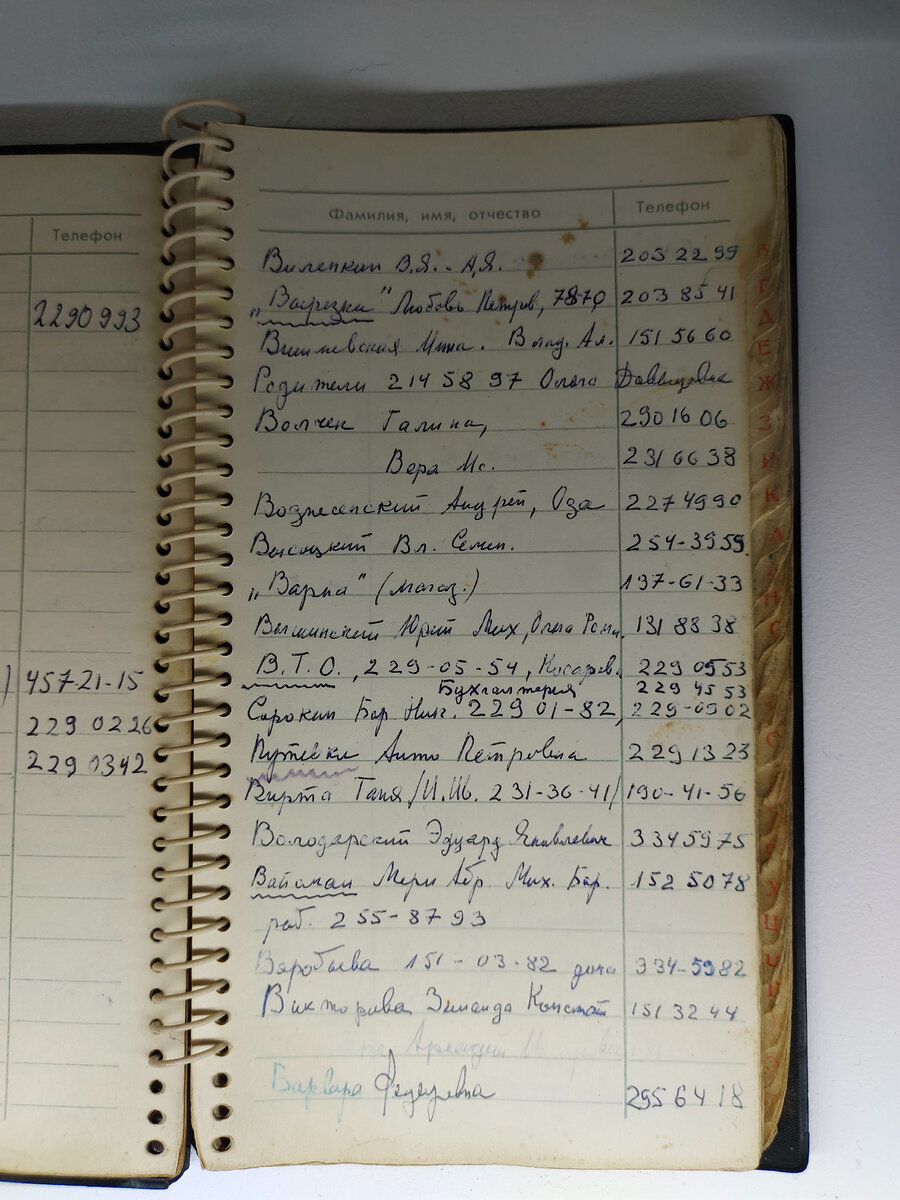 Телефон
2290993
457-21-15
229 0226
229 0342
Фамилия, имя, отчество Телефон
Виленкин В.Я. - А,Я. 203 22 99
„Вырезки" Любовь Петров, 7870, 203 85 41
Вишневская Инна. Влад. Ал. 151 56 60
Родители 214 58 97 Ольга Давыдовна
Волчек Галина, 290 16 06
Вера Ис. 231 66 38
Вознесенский Андрей, Оза 227 49 90
Высоцкий Вл. Семен. 254-39 59
„Варна" (магаз.) 197-61-33
Вышинский Юрий Мих, Ольга Рома. 131 88 38
В.Т.О., 229-05-54, Косарев. 229 05 53
Бухгалтерия 229 45 53
Сорокин Бор Ник. 229 01-82, 229-09 02
Путевки Анто Петровна 229 13 23
Вирта Таня /И.Ш. 231-36-41/ 190-41-56
Володарский Эдуард Яковлевич 334 59 75
Вайсман Мери Абр Мих. Бор. 152 50 78
раб. 255-87 93
Воробьева 151-03-82 дома 334-59 82
Викторова Зинаида Констан 151 32 44
Аркадий
Варвара Федоровна 295 64 18
В
Г
Д
Е
Ж
З
И
К
Л
У
Ц